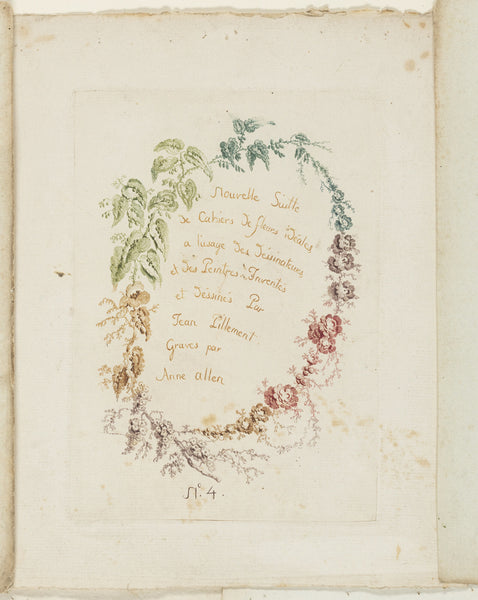 Nouvelle Suitte
de Cahiers de fleurs idéales
a l'usage des dessinateurs
et des Peintres Inventés
et Dessinés Par
Jean Pillement.
Gravés par
Anne allen
N.º 4.